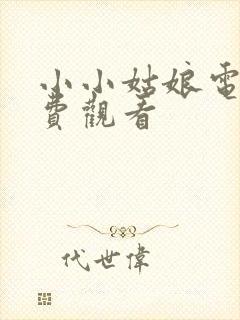 小小姑娘電
費觀看
代世偉